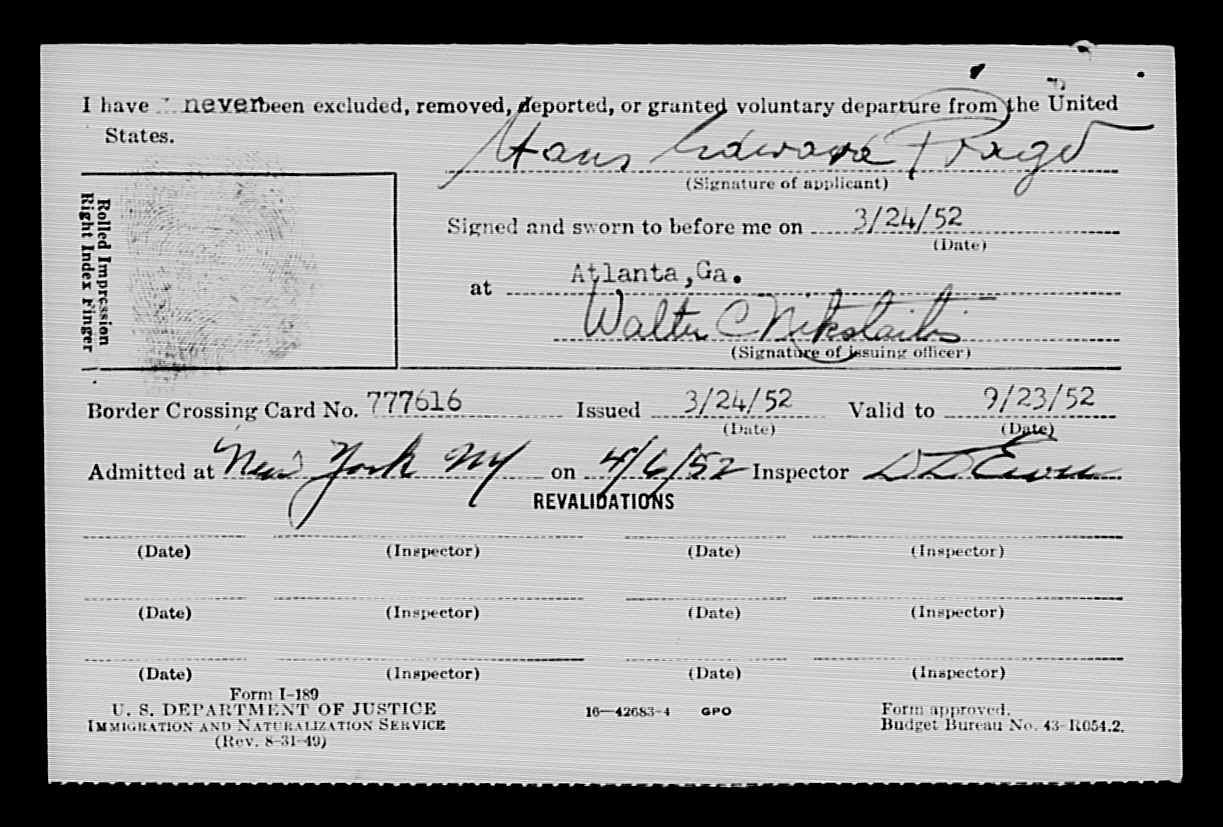 I have never been excluded, removed, deported, or granted voluntary departure from the United
States.
Hans Edward Prager
(Signature of applicant)
Rolled Impression
Right Index Finger
Signed and sworn to before me on 3/24/52
(Date)
at Atlanta,Ga.
Walter C Nikolaitis
(Signature of issuing officer)
Border Crossing Card No. 777616 Issued 3/24/52 Valid to 9/23/52
(Date) (Date)
Admitted at New York NY on 4/6/52 Inspector
REVALIDATIONS
(Date) (Inspector) (Date) (Inspector)
(Date) (Inspector) (Date) (Inspector)
(Date) (Inspector) (Date) (Inspector)
Form I-189
U. S. DEPARTMENT OF JUSTICE 16—42683-4 GPO Form approved.
IMMIGRATION AND NATURALIZATION SERVICE Budget Bureau No. 43-R054.2.
(Rev. 8-31-49)